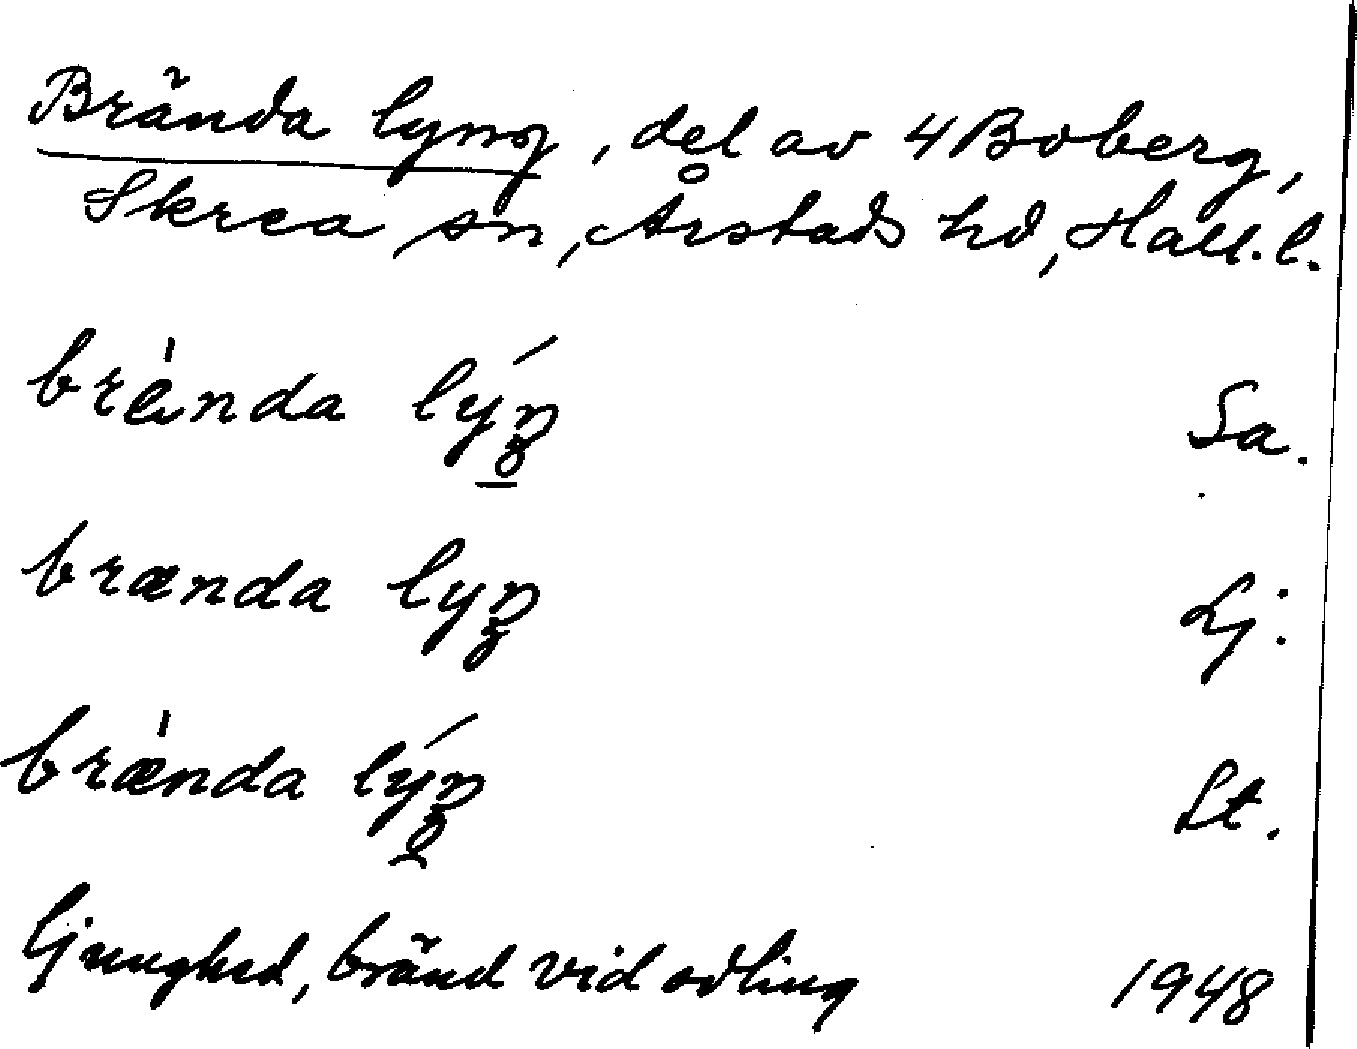 Brända lyng, del av 4 Boberg,
Skrea sn, Årstads hd, Hall. l.
brǽnda lýŋ Sa.
brænda lyŋ Lj.
brǽnda lýŋ St.
ljunghed, bränd vid odling 1948